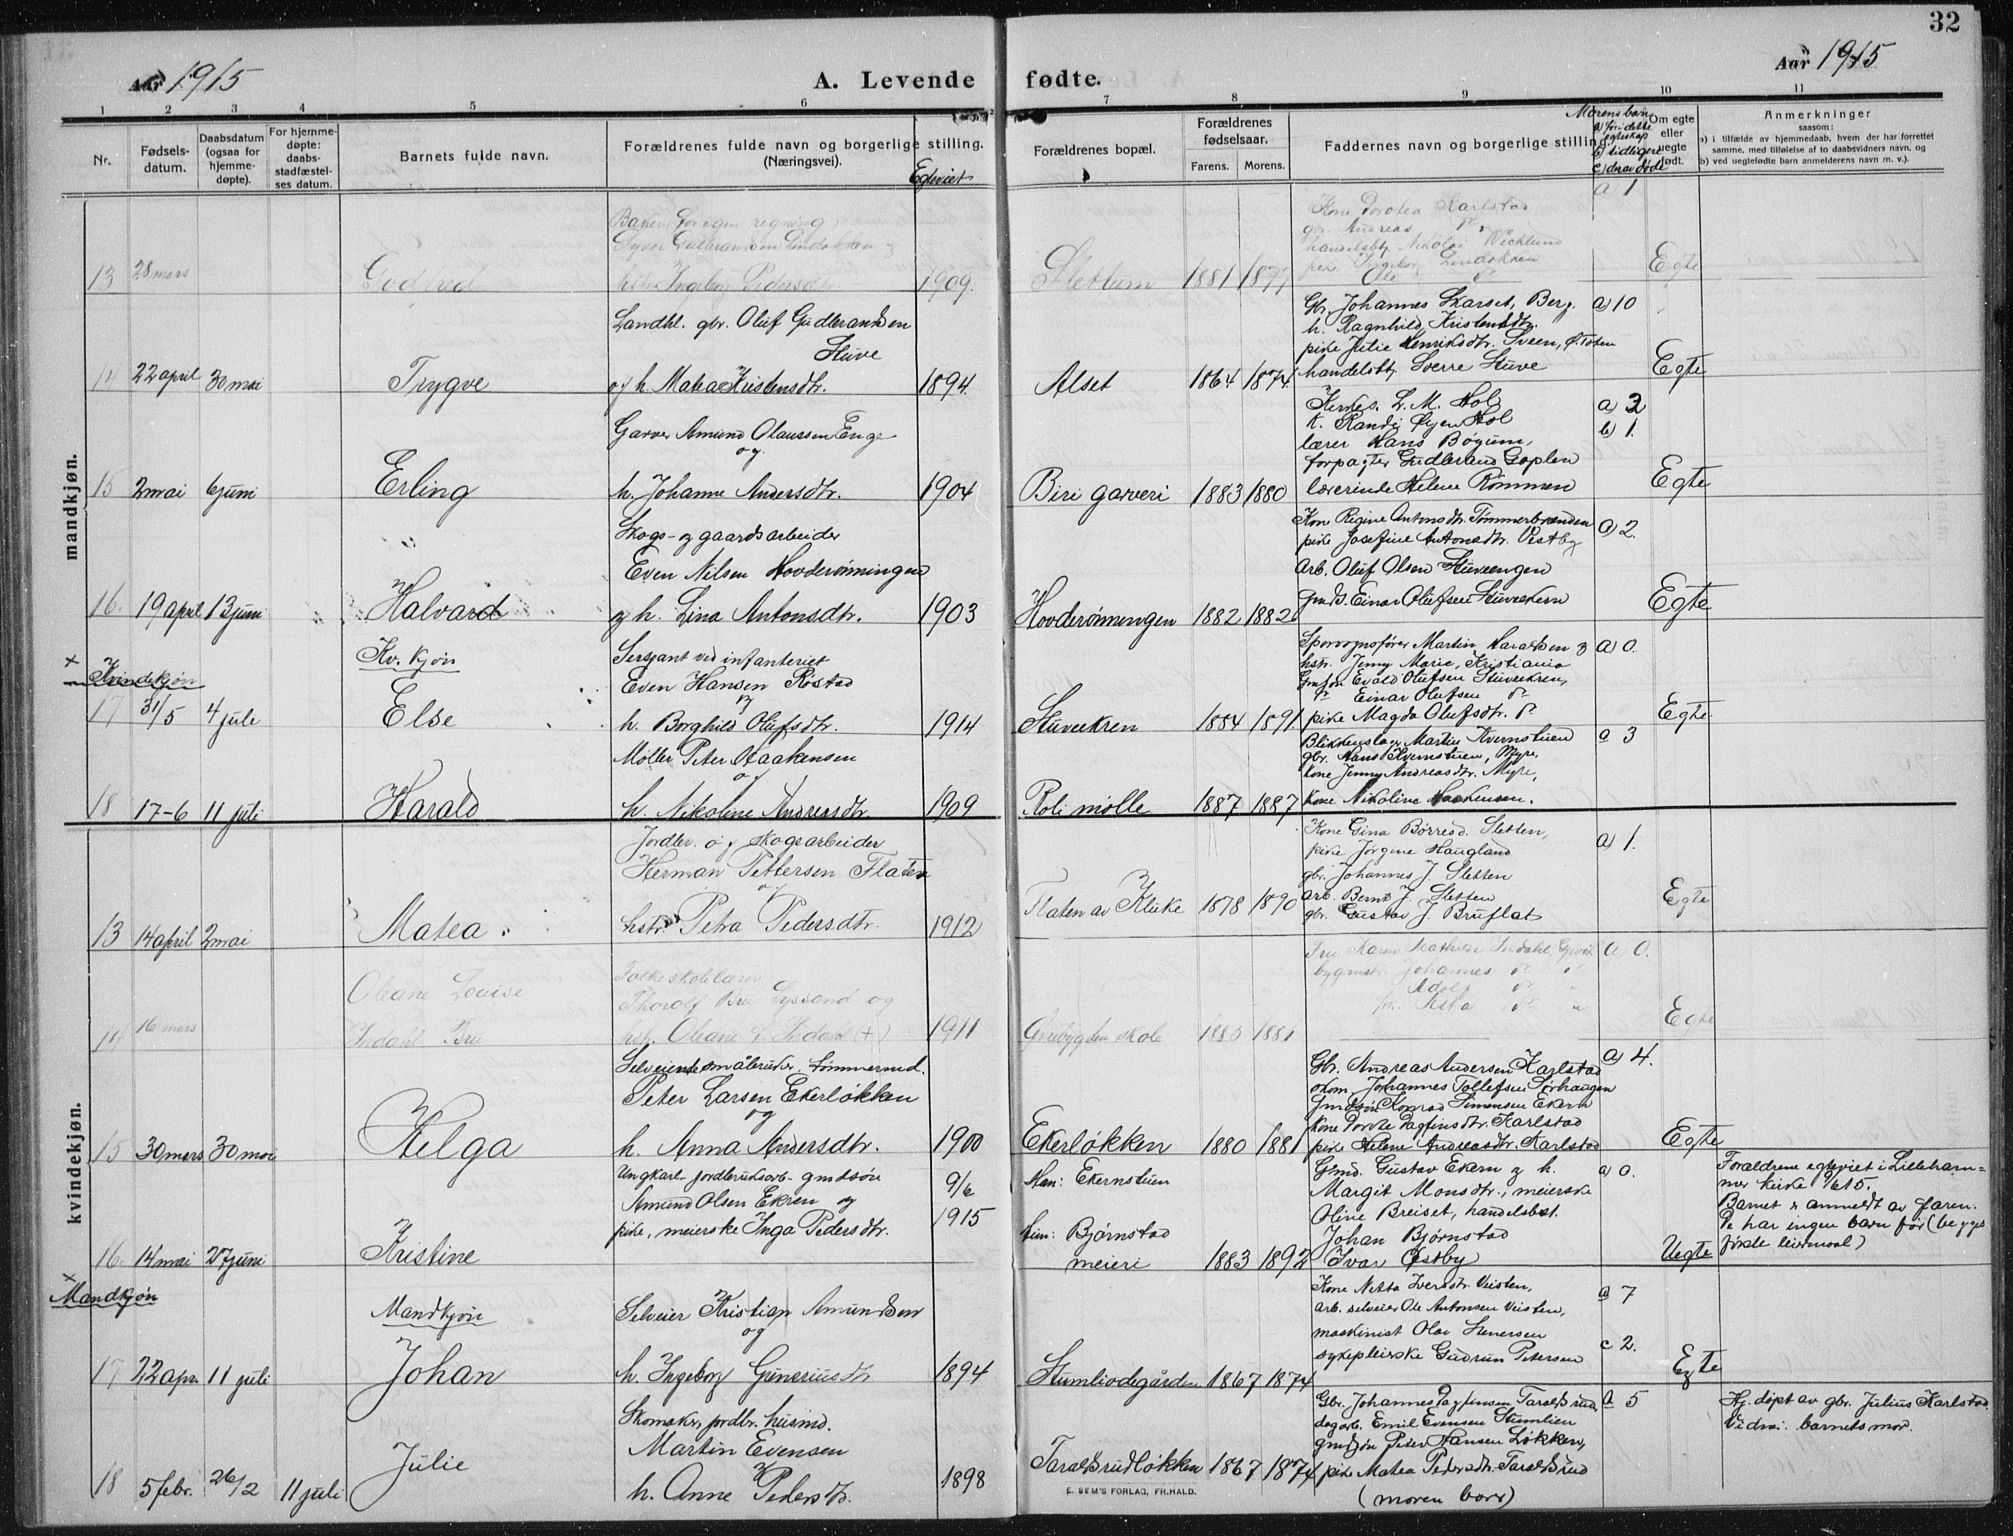 32
Aar 1915
A. Levende fødte.
Aar 1915
1 2 3 4 5 6 7 8 9 10 11
Nr.
Fødsels-
datum.
Daabsdatum
(ogsaa for
hjemme-
døpte).
For hjemme-
døpte:
daabs-
stadfæstel-
ses datum.
Barnets fulde navn.
Forældrenes fulde navn og borgerlige stilling.
(Næringsvei).
Egteviet
Forældrenes bopæl.
Forældrenes
fødselsaar.
Farens. Morens.
Faddernes navn og borgerlige stilling.
Morens barn
a) før i dette
egteskap
b) tidligere
c) derav døde
Om egte
eller
uegte
født.
Anmerkninger
saasom:
a) i tilfælde av hjemmedaab, hvem der har forrettet
samme, med tilføielse af to daabsvidners navn, og
b) ved uegtefødte barn anmelderens navn m. v.).
mandkjøn.
13 28 mars
Godfred
Baker for egen regning
hstr. Ingeborg Pedersdtr.
1909.
Slettum 1881 1877
Kone Dorotea Karlstad
gbr. Andreas do
handelsbtj. Nikolai Wicklund
pike Ingeborg Lindekren
Ole do
a) 1
Egte
14 22 april 30 mai
Trygve
Landhl. gbr. Oluf Gudbrandsen
Stuve
og h. Matea Kristensdtr.
1894.
Alset 1864 1874.
Gbr. Johannes Skarset, Berg.
h. Ragnhild Kristensdtr.
pike Julie Henriksdtr. Sveen, Ø. Toten
handelsbtj. Sverre Stuve
a) 10
Egte
15 2 mai 6 juni
Erling
Garver Amund Olaussen Enge
og
h. Johanne Andersdtr.
1904
Biri garveri 1883 1880
L. M. Hol
k. Randi Øyen Hol
lærer Hans Bøgum,
forpagter Gudbrand Goplen
lærerinde Helene Rommen
a) 3
b) 1.
Egte
16. 19 april 13 juni
Halvard
Skogs- og gaardsarbeider
Even Nilsen Hovderønningen
og h. Lina Antonsdtr.
1903
Hovderønningen 1882 1882
Kone Regine Antonsdtr. Tømmerbrænden
pike Josefine Antonsdtr. Vestby
Arb. Oluf Olsen Stuveengen
Gmds. Einar Olufsen Stuveekren
a) 2.
Egte
x
Kvindekjøn
17 31/5 4 juli
Kv. kjøn
Else
Sersjant ved infanteriet
Even Hansen Rostad
og
h. Borghild Olufsdtr.
1914
Stuveekren 1884 1891
Sporvognsfører Martin Haraldsen og
hstr. Jenny Marie, Kristiania
Gmdsøn Evald Olufsen Stuveekren,
do Einar Olufsen do
pike Magda Olufsdtr. do
a) 0.
Egte
18 17-6 11 juli
Harald
Møller Peter Haakensen
og
h. Nikoline Andreasdtr.
1909
Roli mølle 1887 1887
Blikkenslager Martin Kvernstuen
gbr. Hans Kvernstuen, Myre,
kone Jenny Andreasdtr. Myre,
kone Nikoline Haakensen.
a 3
kvindekjøn.
13 14 april 2 mai
Matea
Jordbr. og skogsarbeider
Herman Pettersen Flaten
og
hstr. Petra Pedersdtr.
1912
Flaten av Kluke 1878 1890
Kone Gina Børresd. Sletten,
pike Jørgine Haugland
gbr. Johannes J. Sletten
arb. Bernt J. Sletten
gbr. Gustav J. Bruflat
a) 1.
Egte
14 16 mars
Oleane Louise
Indahl Bru
Folkeskolelærer
Thoralf Bru Lyssand og
hstr. Oleane f. Indahl (+)
1911
skole 1880 1881
Fru Karen Mathilde Indahl, Gjøvik
bygmstr. Johannes do "
Adolf do "
frk. Asta do "
a) 0.
Egte
15 30 mars 30 mai
Helga
Selveiende småbruker, tømmermd.
Peter Larsen Ekerløkken
og
h. Anna Andersdtr.
1900
Ekerløkken 1880 1881
Gbr. Andreas Andersen Karlstad
Johannes Tollefsen Sørhaugen
Gmdsøn Konrad Simensen Ekern
kone Dorte Dagfinsdtr. Karlstad
pike Helene Andreasdtr. Karlstad
a) 4.
Egte
16. 14 mai 27 juni
Kristine
Ungkarl jordbruksarb. gmdsøn
Amund Olsen Ekren og
pike, meierske Inga Pedersdtr.
9/6
1915
Han: Ekernstuen
hun: Bjørnstad
meieri 1883 1892
Gmd. Gustav Ekern og h.
Margit Monsdtr., meierske
Oline Breiset, handelsbst.
Johan Bjørnstad
Ivar Østby
a) 0.
Uegte
Forældrene egteviet i Lilleham-
mer kirke 9/6 15.
Barnet er anmeldt av faren.
De har ingen barn før (begges
første leiermaal)
x
Mandkjøn
17 22 apr. 11 juli
Mandkjøn
Johan
Selveier Kristian Amundsen
og
h. Ingeborg Gunariusdtr
1894
Stumliodegården 1867 1874
Kone Netta Iversdtr. Veisten,
arb. selveier Ole Antonsen Veisten,
maskinist Olav Stenersen
sykepleierske Gudrun Petersen
a 7
c 2.
Egte
18 5 febr. 26/2 11 juli
Julie
Skomaker, jordbr. husmd.
Martin Evensen
og
h. Anne Pedersdtr.
1898
Taralsrudløkken 1867 1874
Gbr. Johannes Dagfinsen Taralsrud,
dagarb. Emil Evensen Stumlien
gmdsøn Peter Hansen Løkken,
pike Matea Pedersdtr. Taralsrud
(moren barr)
a 5
Hj. døpt av gbr. Julius Karlstad
Vidne: barnets mor.
E. SEM'S FORLAG, FR.HALD.